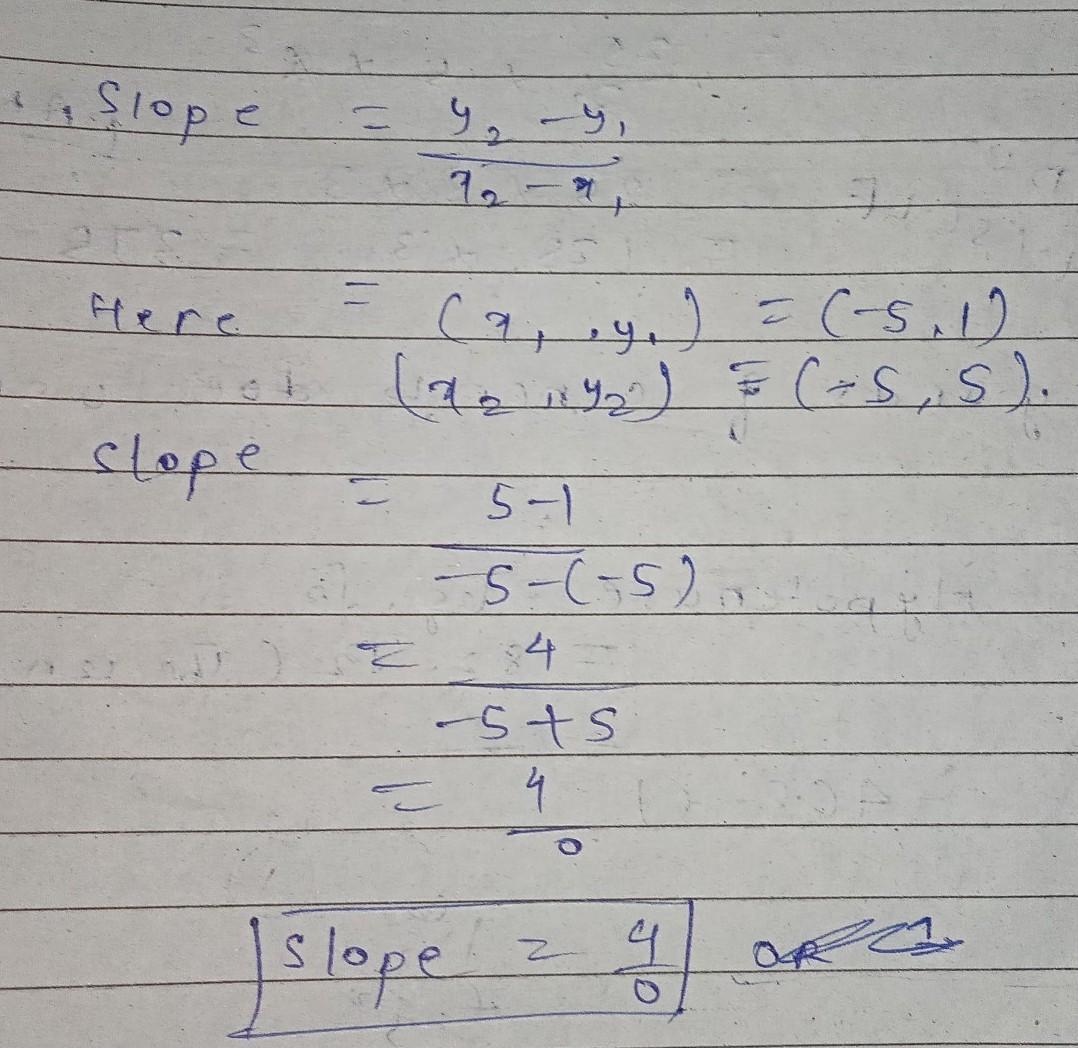 Slope = y₂ - y₁
x₂ - x₁
Here = (x₁, y₁) = (-5, 1)
(x₂, y₂) = (-5, 5).
Slope
= 5-1
-5-(-5)
= 4
-5+5
= 4
0
Slope = 4
0